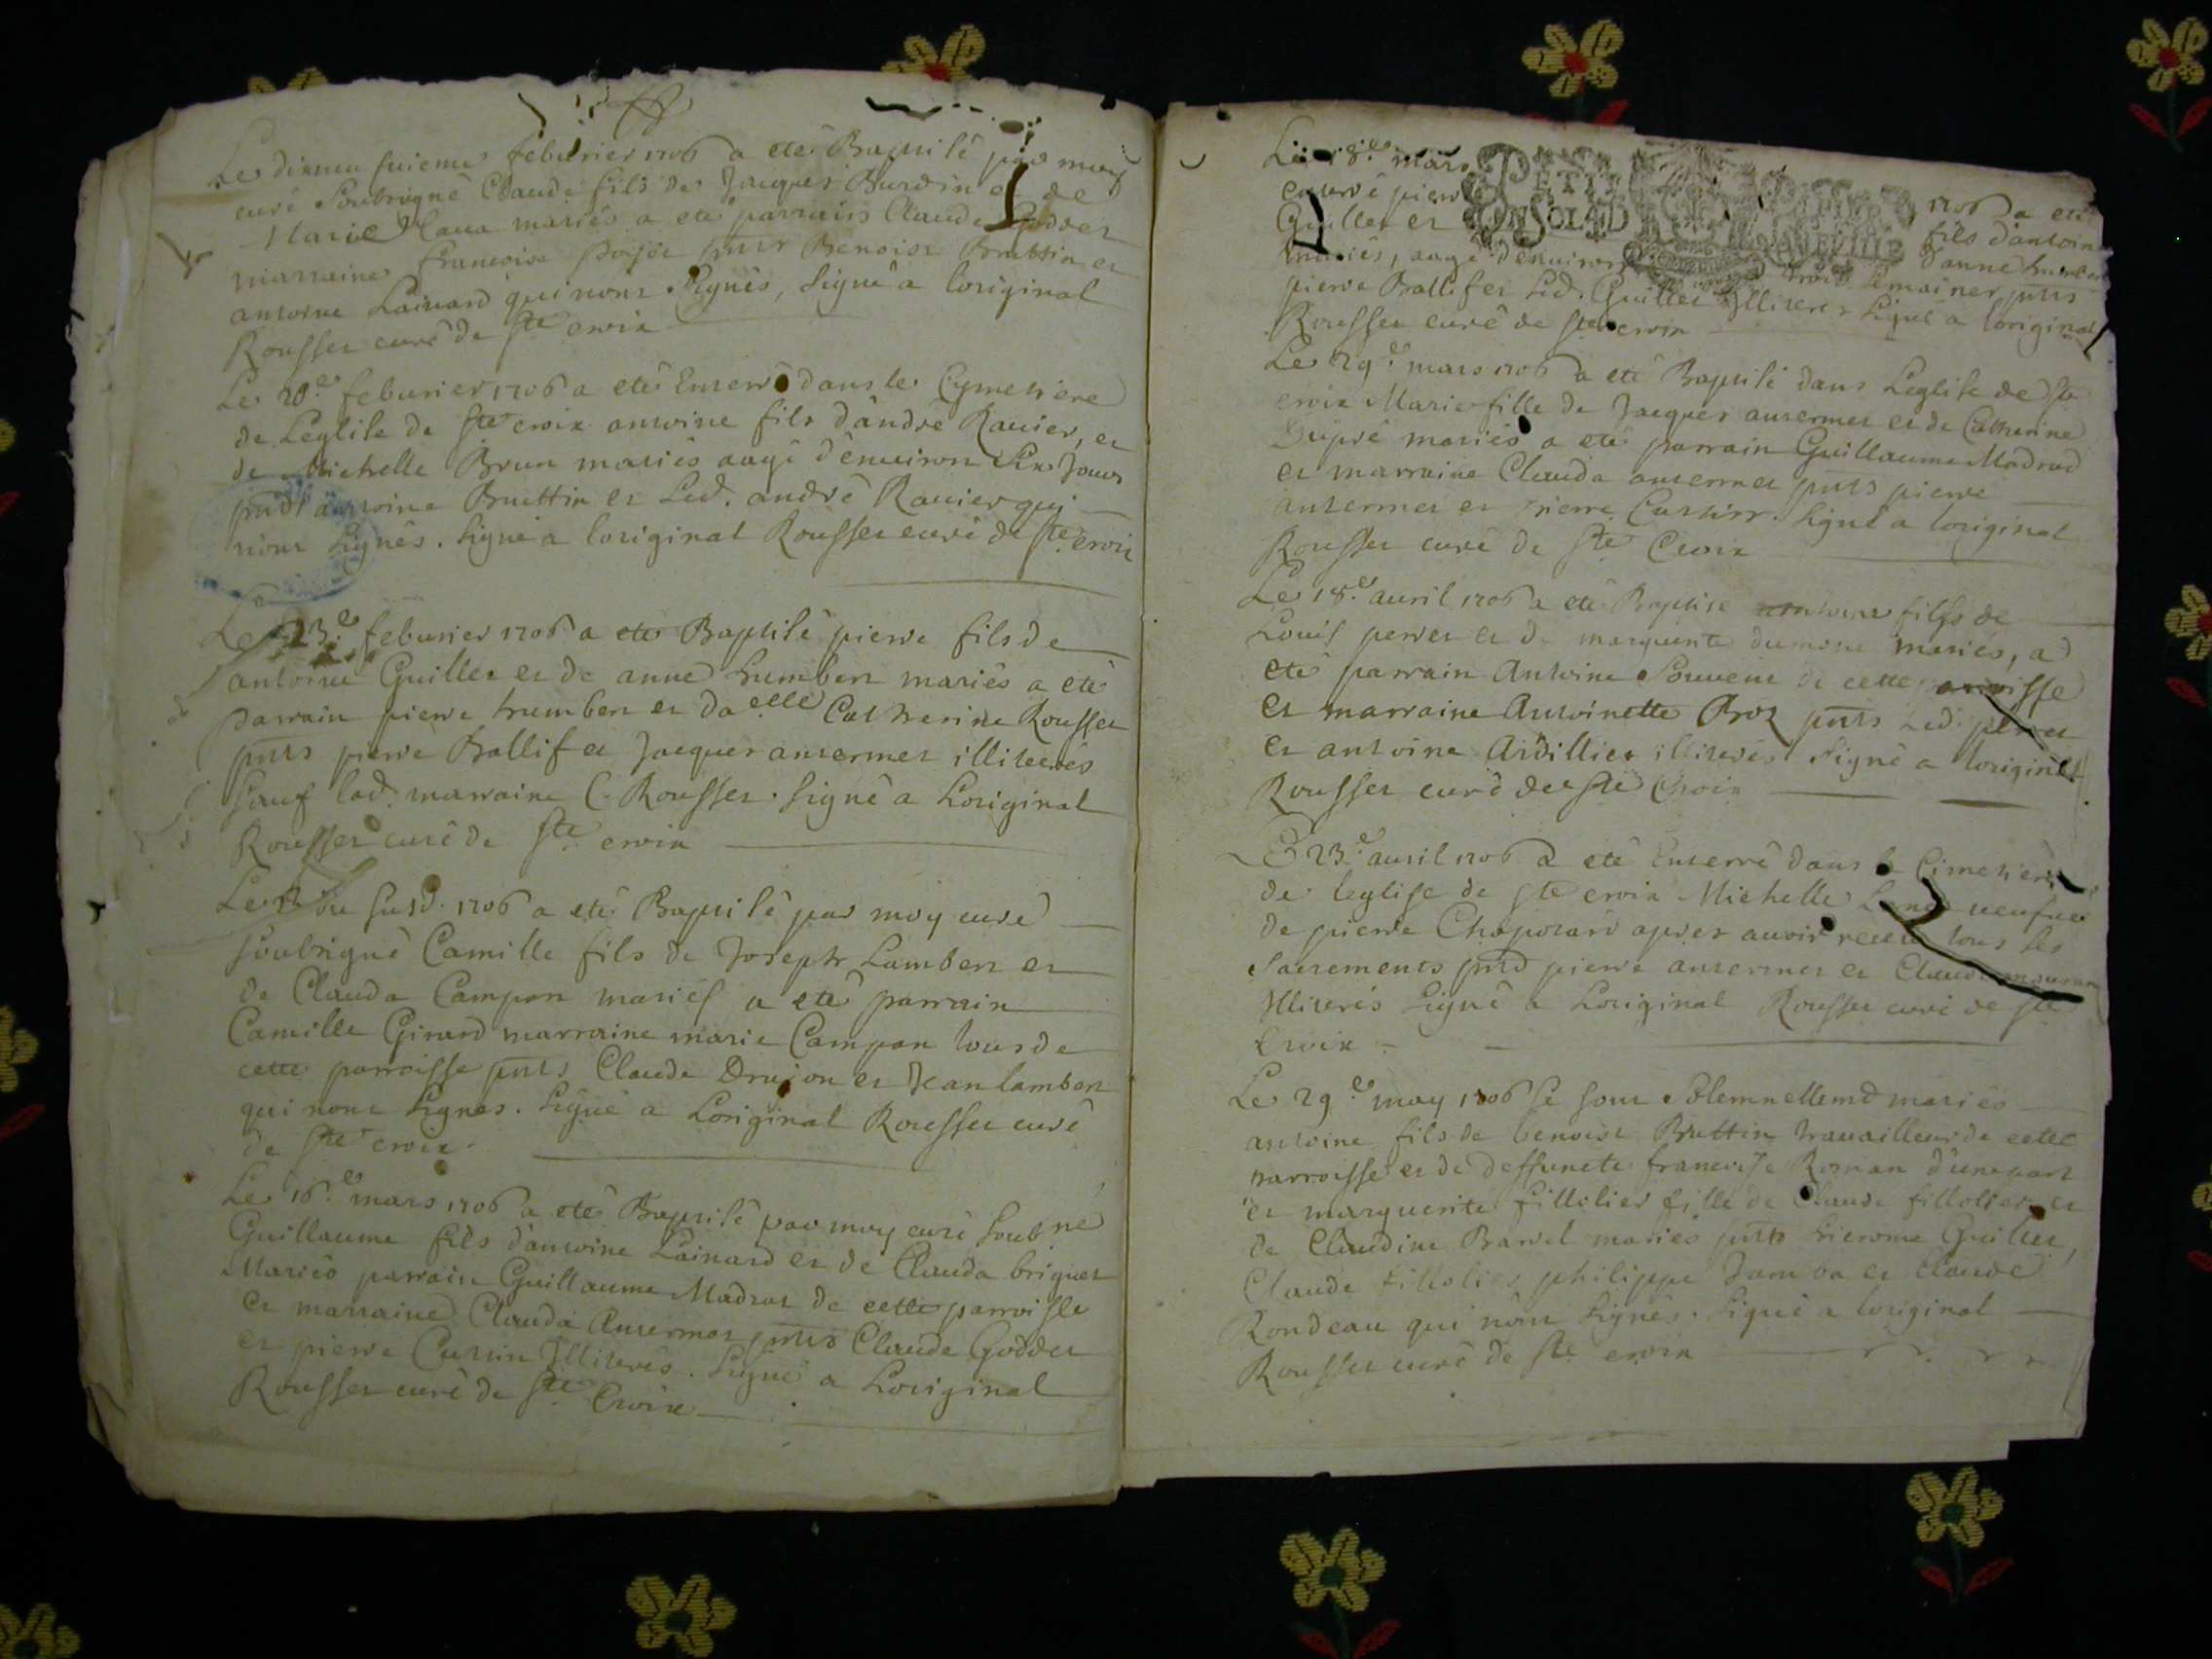 Le feburier 1706 a eté Baptisé par moy
curé Soubsigné Claude fils de Jacques Burdin et de
Marie mariés a eté parrain Claude Godder
marraine francoise pnts Benoist Bruttin et
antoine Lainard qui nont Signés, Signé a loriginal
Rousset curé de Ste croix
Le 20.e feburier 1706 a eté Enterré dans le Cymetiere
de Leglise de Ste croix antoine fils d'andré Ravier, et
de Michelle Brun mariés aagé d'enuiron Six Jours
pnts antoine Bruttin et Led. andré Ravier qui
nont Signés. Signé a loriginal Rousset curé de Ste croix
Le 23.e feburier 1706 a eté Baptisé pierre fils de
antoine Guillet et de anne humbert mariés a eté
parrain pierre humbert et daelle Catherine Rousset
pnts pierre Ballif et Jacques ansermet illiterés
Sauf lad. marraine C. Rousset. Signé a Loriginal
Rousset curé de Ste croix
Le du susd. 1706 a eté Baptisé par moy curé
soubsigné Camille fils de Joseph Lambert et
de Clauda Campan mariés a eté parrain
Camille Girard marraine marie Campan tous de
cette parroisse pnts Claude Drujon et Jean lambert
qui nont Signes. Signé a Loriginal Rousset curé
de Ste croix.
Le 16.e mars 1706 a eté Baptisé par moy curé Soubsné
Guillaume fils d'antoine Lainard et de Clauda briguet
Mariés parrain Guillaume Madrat de cette parroisse
et marraine Clauda Ansermet pnts Claude Godder
et pierre Cussin Illiterés. Signé a Loriginal
Rousset curé de Ste Croix
Le 18.e mars 1706 a eté
enterré pierre fils d'antoine
Guillet et d'anne humbert
mariés, aagé d'enuiron trois Semaines pnts
pierre Ballif et Led. Guillet Illiterés Signé a loriginal
Rousset curé de Ste croix
Le 29.e mars 1706 a eté Baptisé dans Leglise de Ste
croix Marie fille de Jacques ansermet et de Catherine
Dupré mariés a eté parrain Guillaume Madrad
et marraine Clauda ansermet pnts pierre
ansermet et pierre Signé a loriginal
Rousset curé de Ste Croix
Le 18.e auril 1706 a eté Baptisé antoine fils de
Louis perret et de marguerite dumont mariés, a
eté parrain Antoine Souvent de cette parroisse
Et marraine Antoinette Broz pnts Led. perret
Et antoine Ardillier illiterés Signé a loriginal
Rousset curé de Ste Croix
Le 23.e auril 1706 a eté Enterré dans le Cimetiere
de leglise de Ste croix Michelle ueufue
de pierre Chapotard apres auoir receu tous les
Sacrements pntd pierre ansermet et Claude
Illiterés Signé a Loriginal Rousset curé de Ste
Croix
Le 29.e may 1706 se sont Solemnellemt mariés
antoine fils de benoist Bruttin trauailleur de cette
parroisse et de deffuncte francoise Roman d'une part
et marguerite fillolier fille de Claude fillolier et
de Claudine Bardel mariés pnts hierome Guillet,
Claude fillolier philippe Jamba et Claude
Rondeau qui nont Signés. Signé a loriginal
Rousset curé de Ste croix